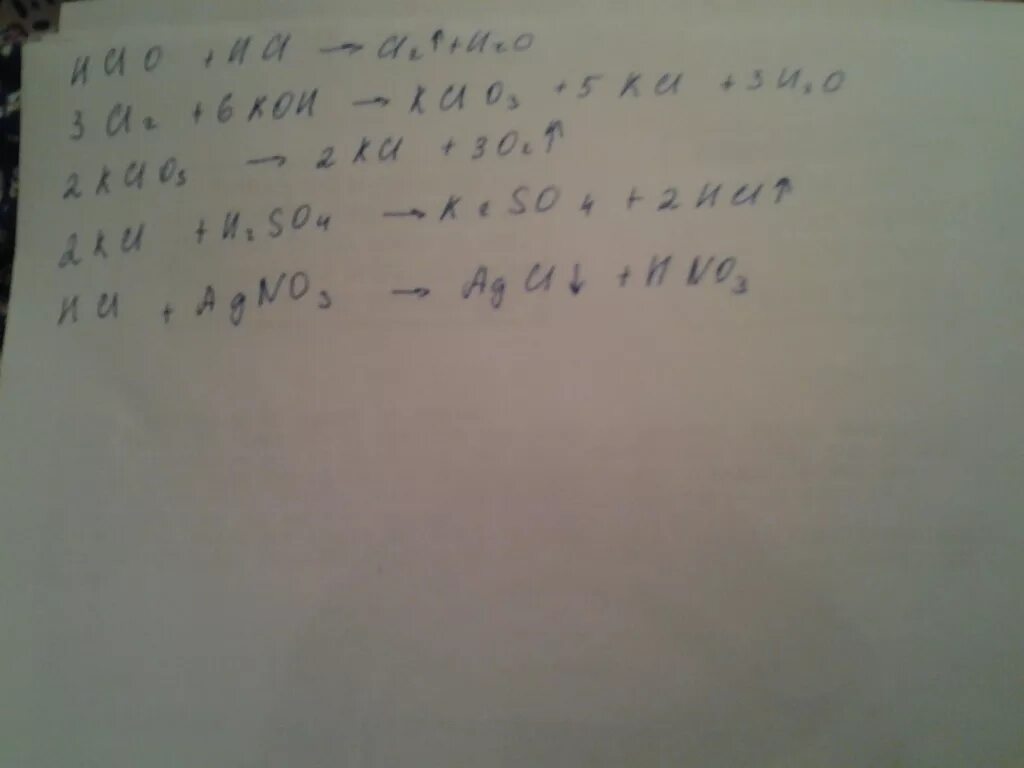 HClO + HCl → Cl₂↑ + H₂O
3Cl₂ + 6KOH → KClO₃ + 5KCl + 3H₂O
2KClO₃ → 2KCl + 3O₂↑
2KCl + H₂SO₄ → K₂SO₄ + 2HCl↑
HCl + AgNO₃ → AgCl↓ + HNO₃